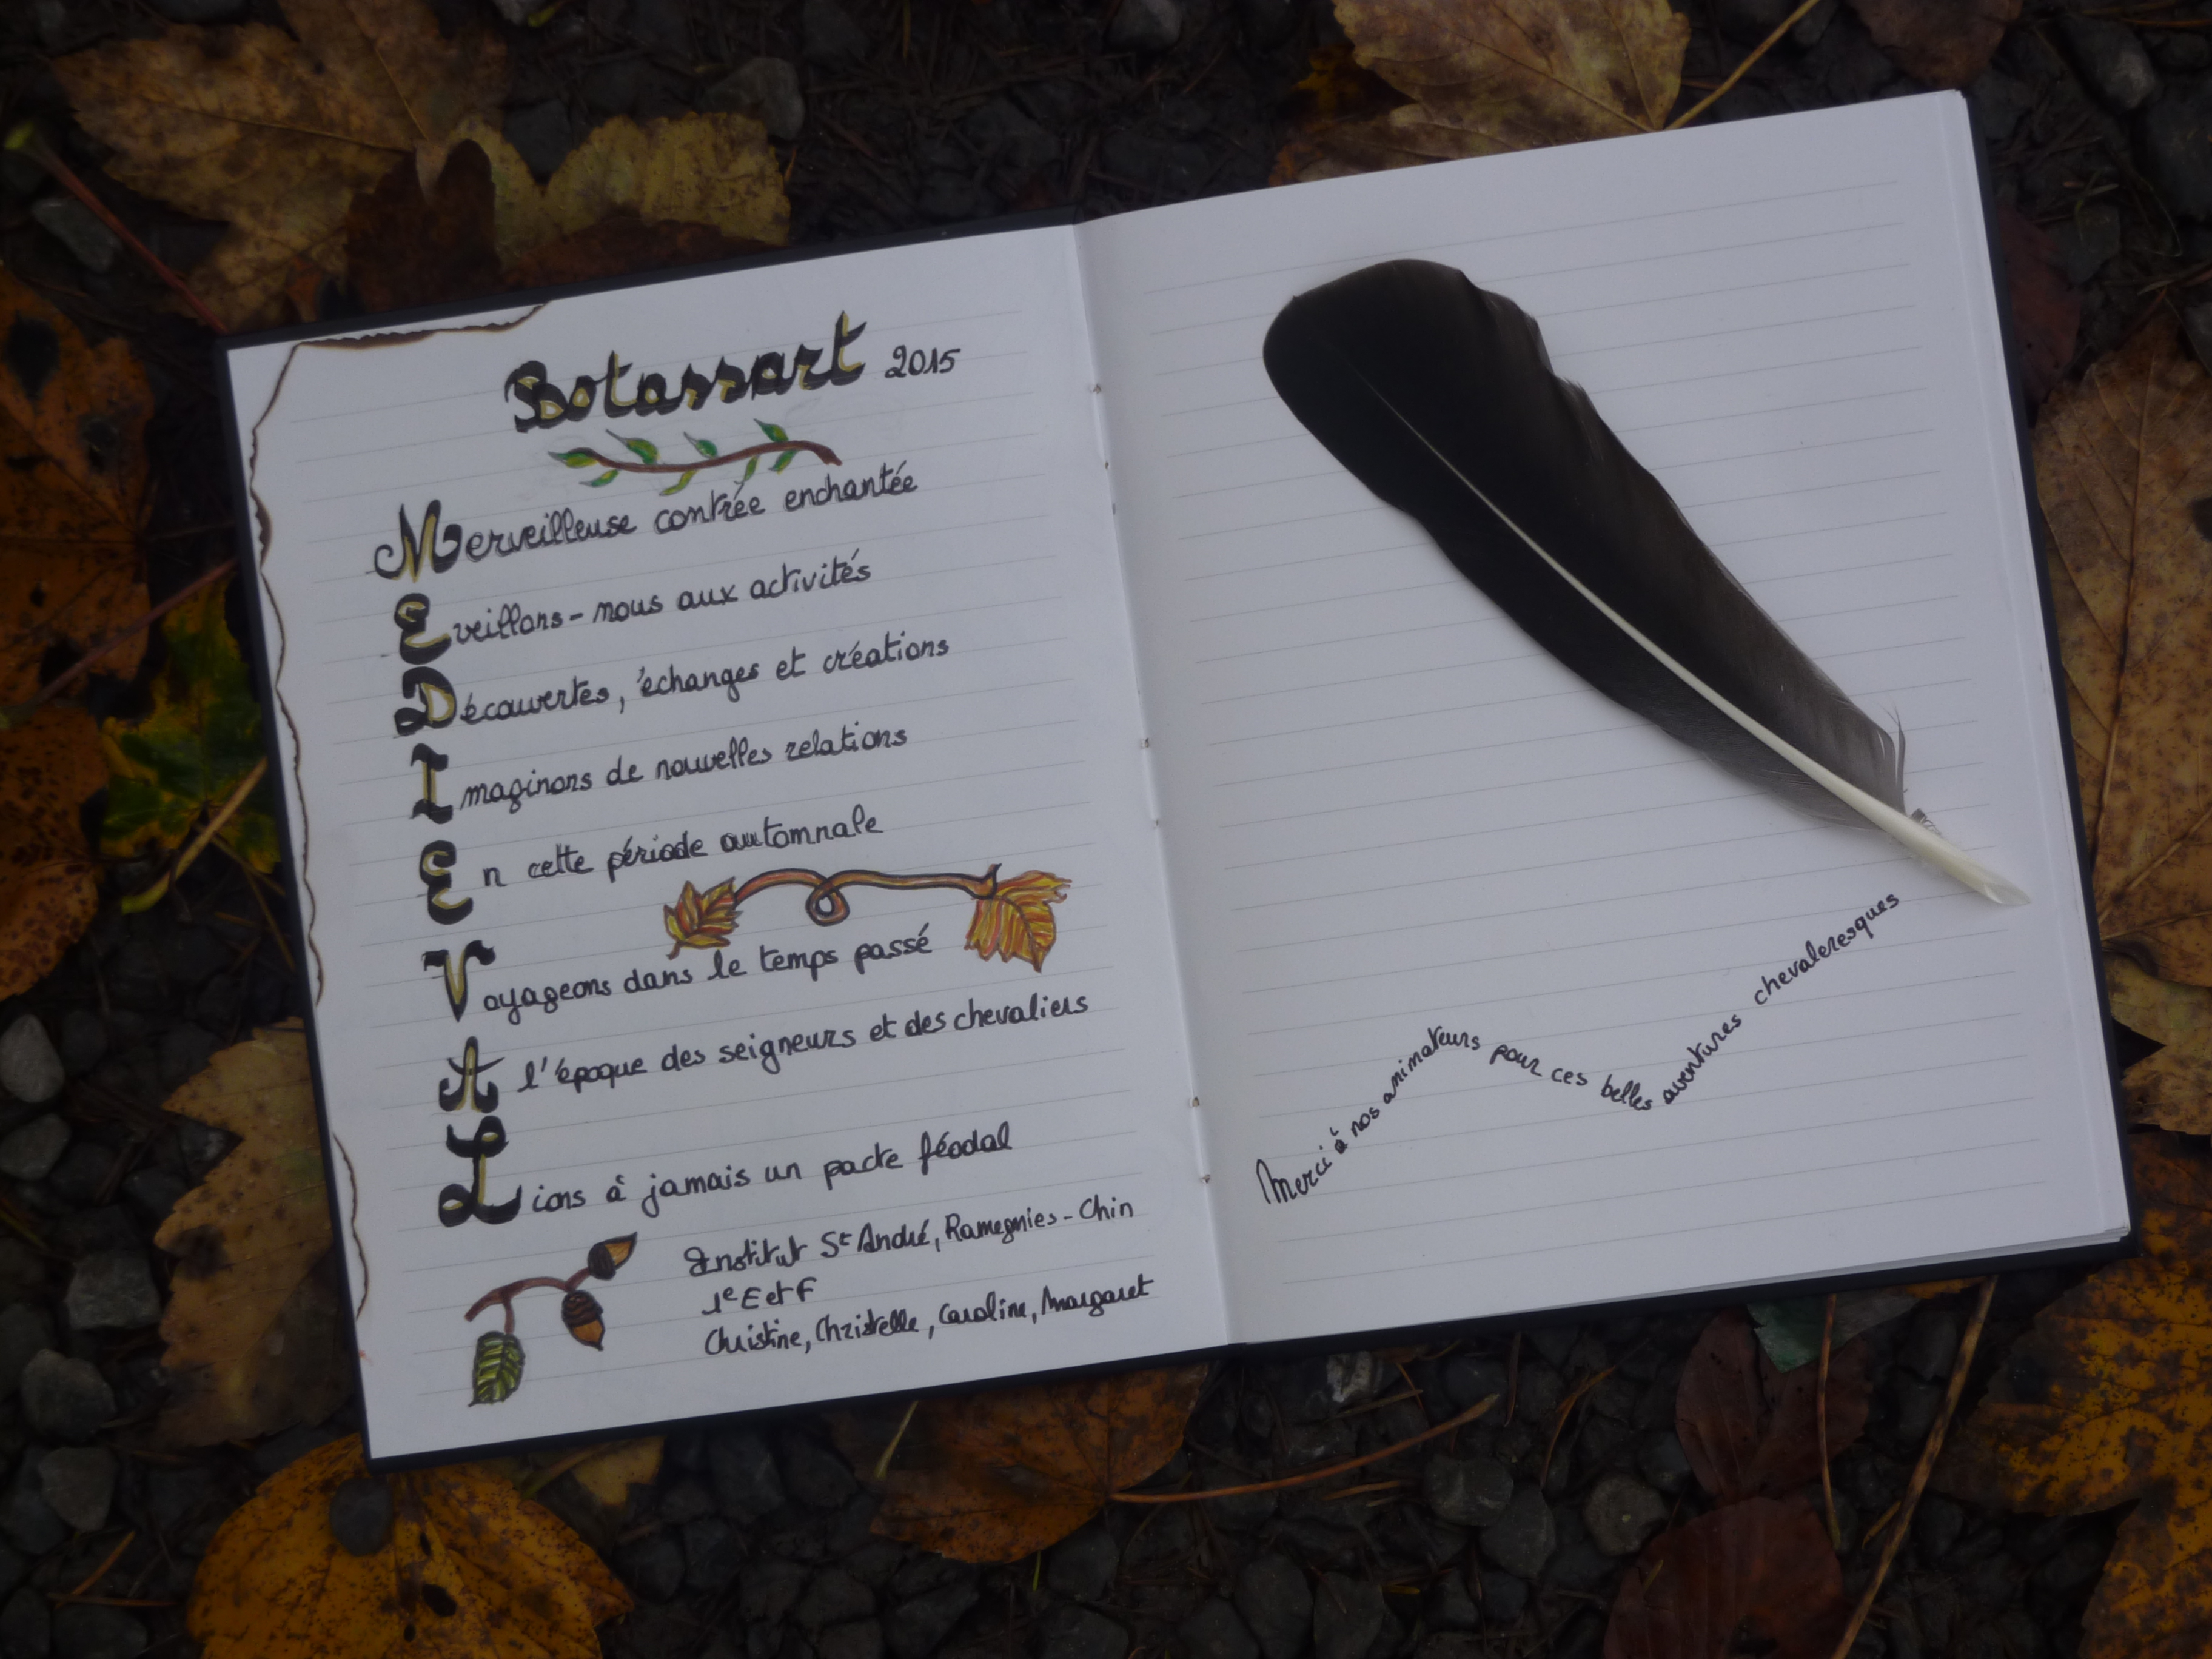 Botassart 2015
Merveilleuse contrée enchantée
Eveillons-nous aux activités
Découvertes, échanges et créations
Imaginons de nouvelles relations
En cette période automnale
Voyageons dans le temps passé
A l'époque des seigneurs et des chevaliers
Lions à jamais un pacte féodal
Institut St André, Ramegnies-Chin
1e E et F
Christine, Christelle, Caroline, Margaret
Merci à nos animateurs pour ces belles aventures chevaleresques